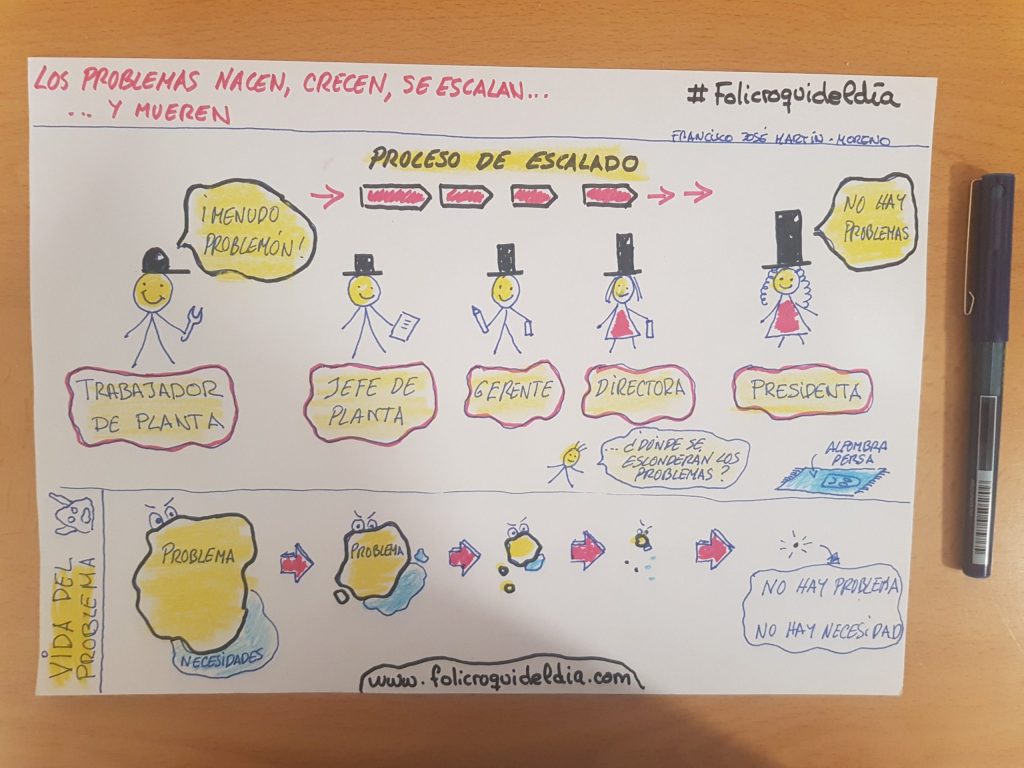 LOS PROBLEMAS NACEN, CRECEN, SE ESCALAN...
... Y MUEREN
#Folicroquideldía
FRANCISCO JOSÉ MARTÍN-MORENO
PROCESO DE ESCALADO
¡MENUDO
PROBLEMÓN!
NO HAY
PROBLEMAS
TRABAJADOR
DE PLANTA
JEFE DE
PLANTA
GERENTE
DIRECTORA
PRESIDENTA
... ¿DÓNDE SE
ESCONDERÁN LOS
PROBLEMAS?
ALFOMBRA
PERSA
VIDA DEL
PROBLEMA
PROBLEMA
NECESIDADES
PROBLEMA
NO HAY PROBLEMA
NO HAY NECESIDAD
www.folicroquideldia.com